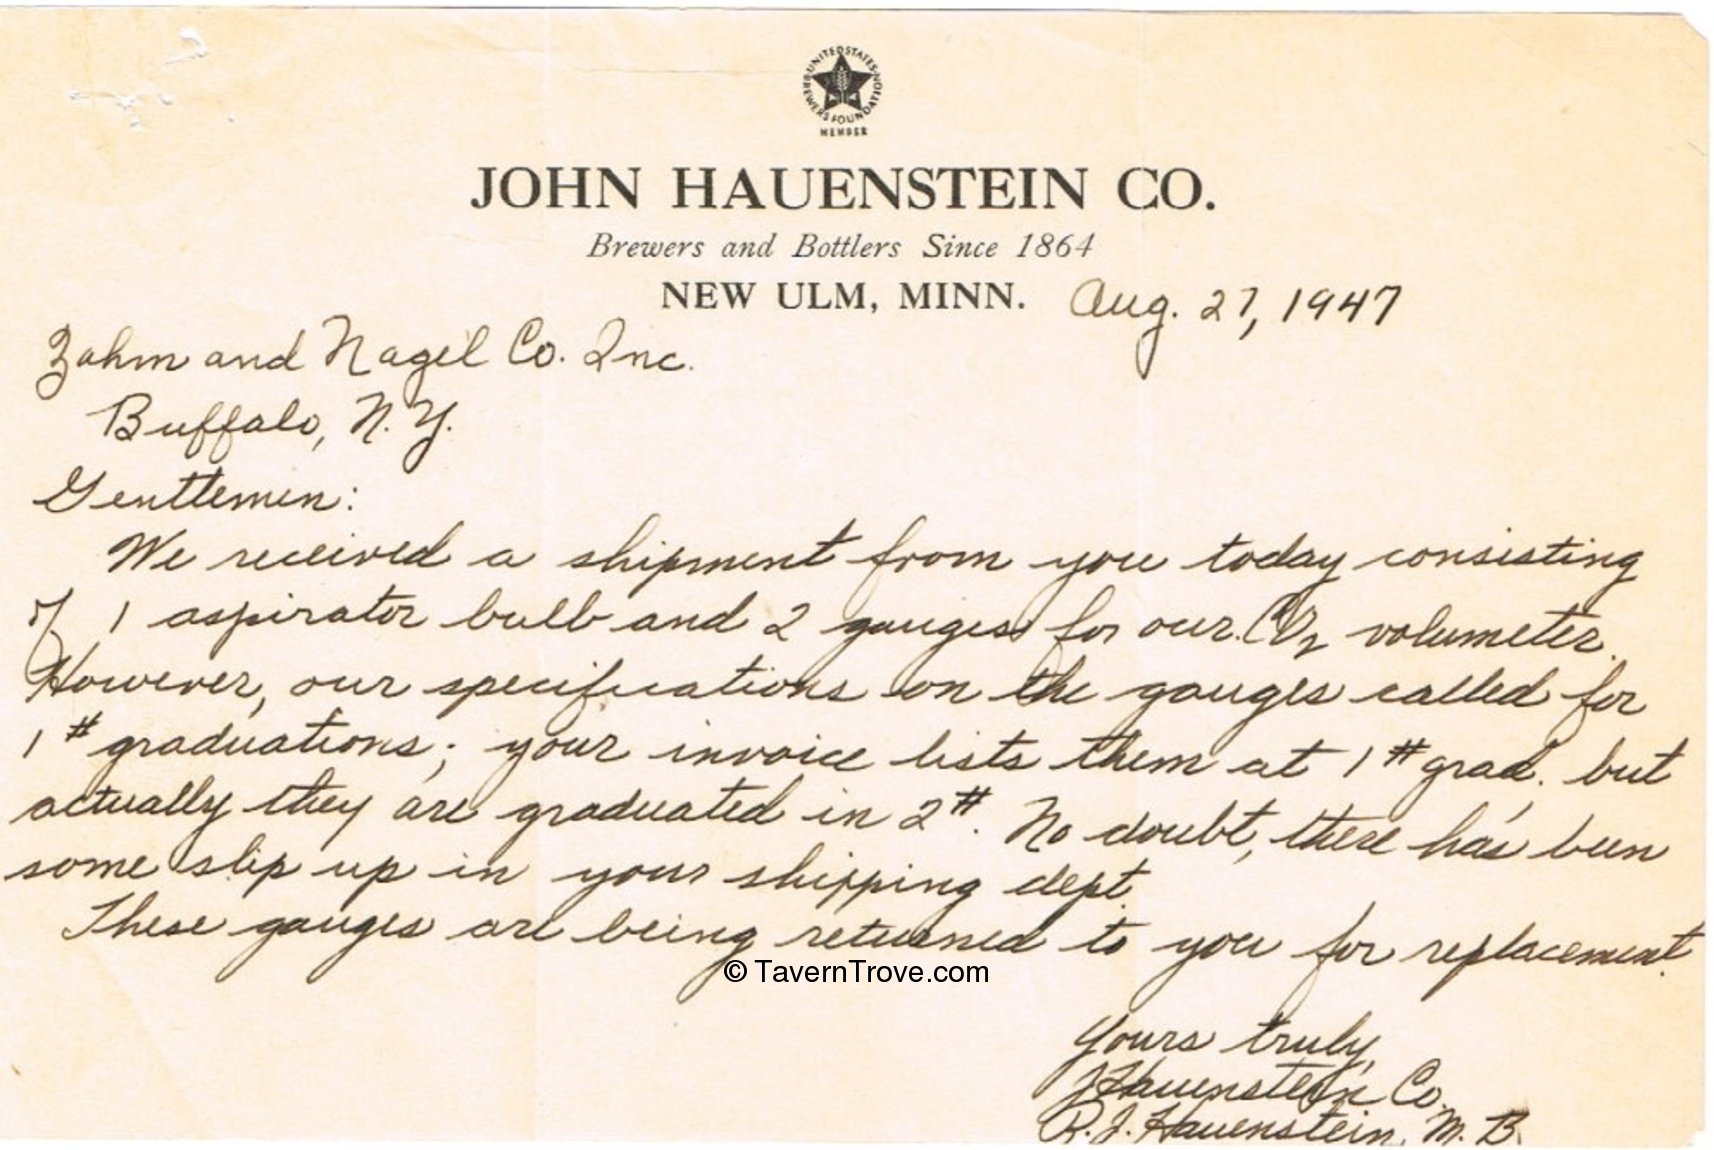 UNITED STATES BREWERS FOUNDATION
MEMBER
JOHN HAUENSTEIN CO.
Brewers and Bottlers Since 1864
NEW ULM, MINN. Aug. 27, 1947
Zahm and Nagel Co. Inc.
Buffalo, N.Y.
Gentlemen:
We received a shipment from you today consisting
of 1 aspirator bulb and 2 gauges for our CO2 volumeter.
However, our specifications on the gauges called for
1# graduations; your invoice lists them at 1# grad. but
actually they are graduated in 2#. No doubt, there has been
some slip up in your shipping dept.
These gauges are being returned to you for replacement.
© TavernTrove.com
Yours truly,
J Hauenstein Co.
R. J. Hauenstein, M. B.